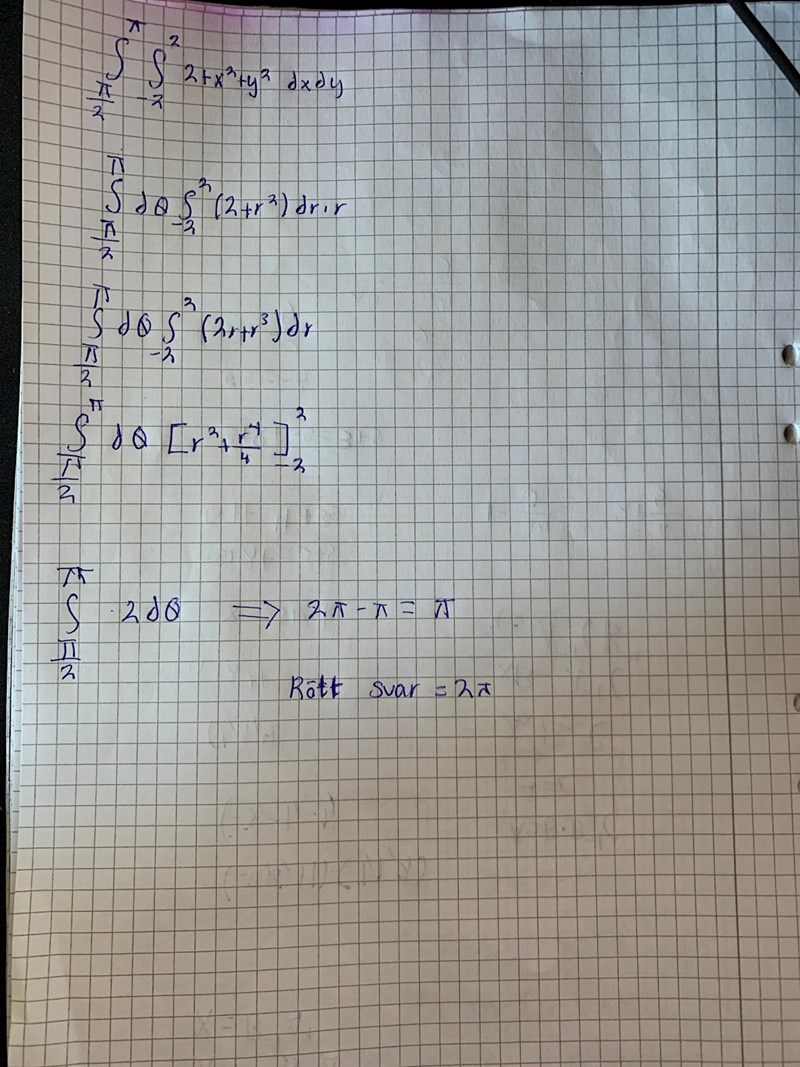 ∫_{π/2}^{π} ∫_{-2}^{2} 2+x²+y² dxdy
∫_{π/2}^{π} dθ ∫_{-2}^{2} (2+r²) dr·r
∫_{π/2}^{π} dθ ∫_{-2}^{2} (2r+r³) dr
∫_{π/2}^{π} dθ [r² + r⁴/4]_{-2}^{2}
∫_{π/2}^{π} ·2dθ ⟹ 2π-π = π
Rätt svar = 2π